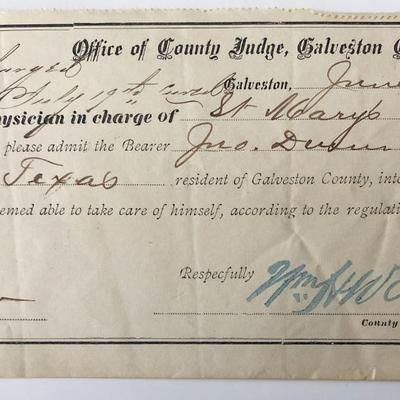 Office of County Judge, Galveston C
July 19th
Galveston, June
ysician in charge of St Marys
please admit the Bearer Jno. Dunn
Texas resident of Galveston County, into
emed able to take care of himself, according to the regulatio
Respecfully
County